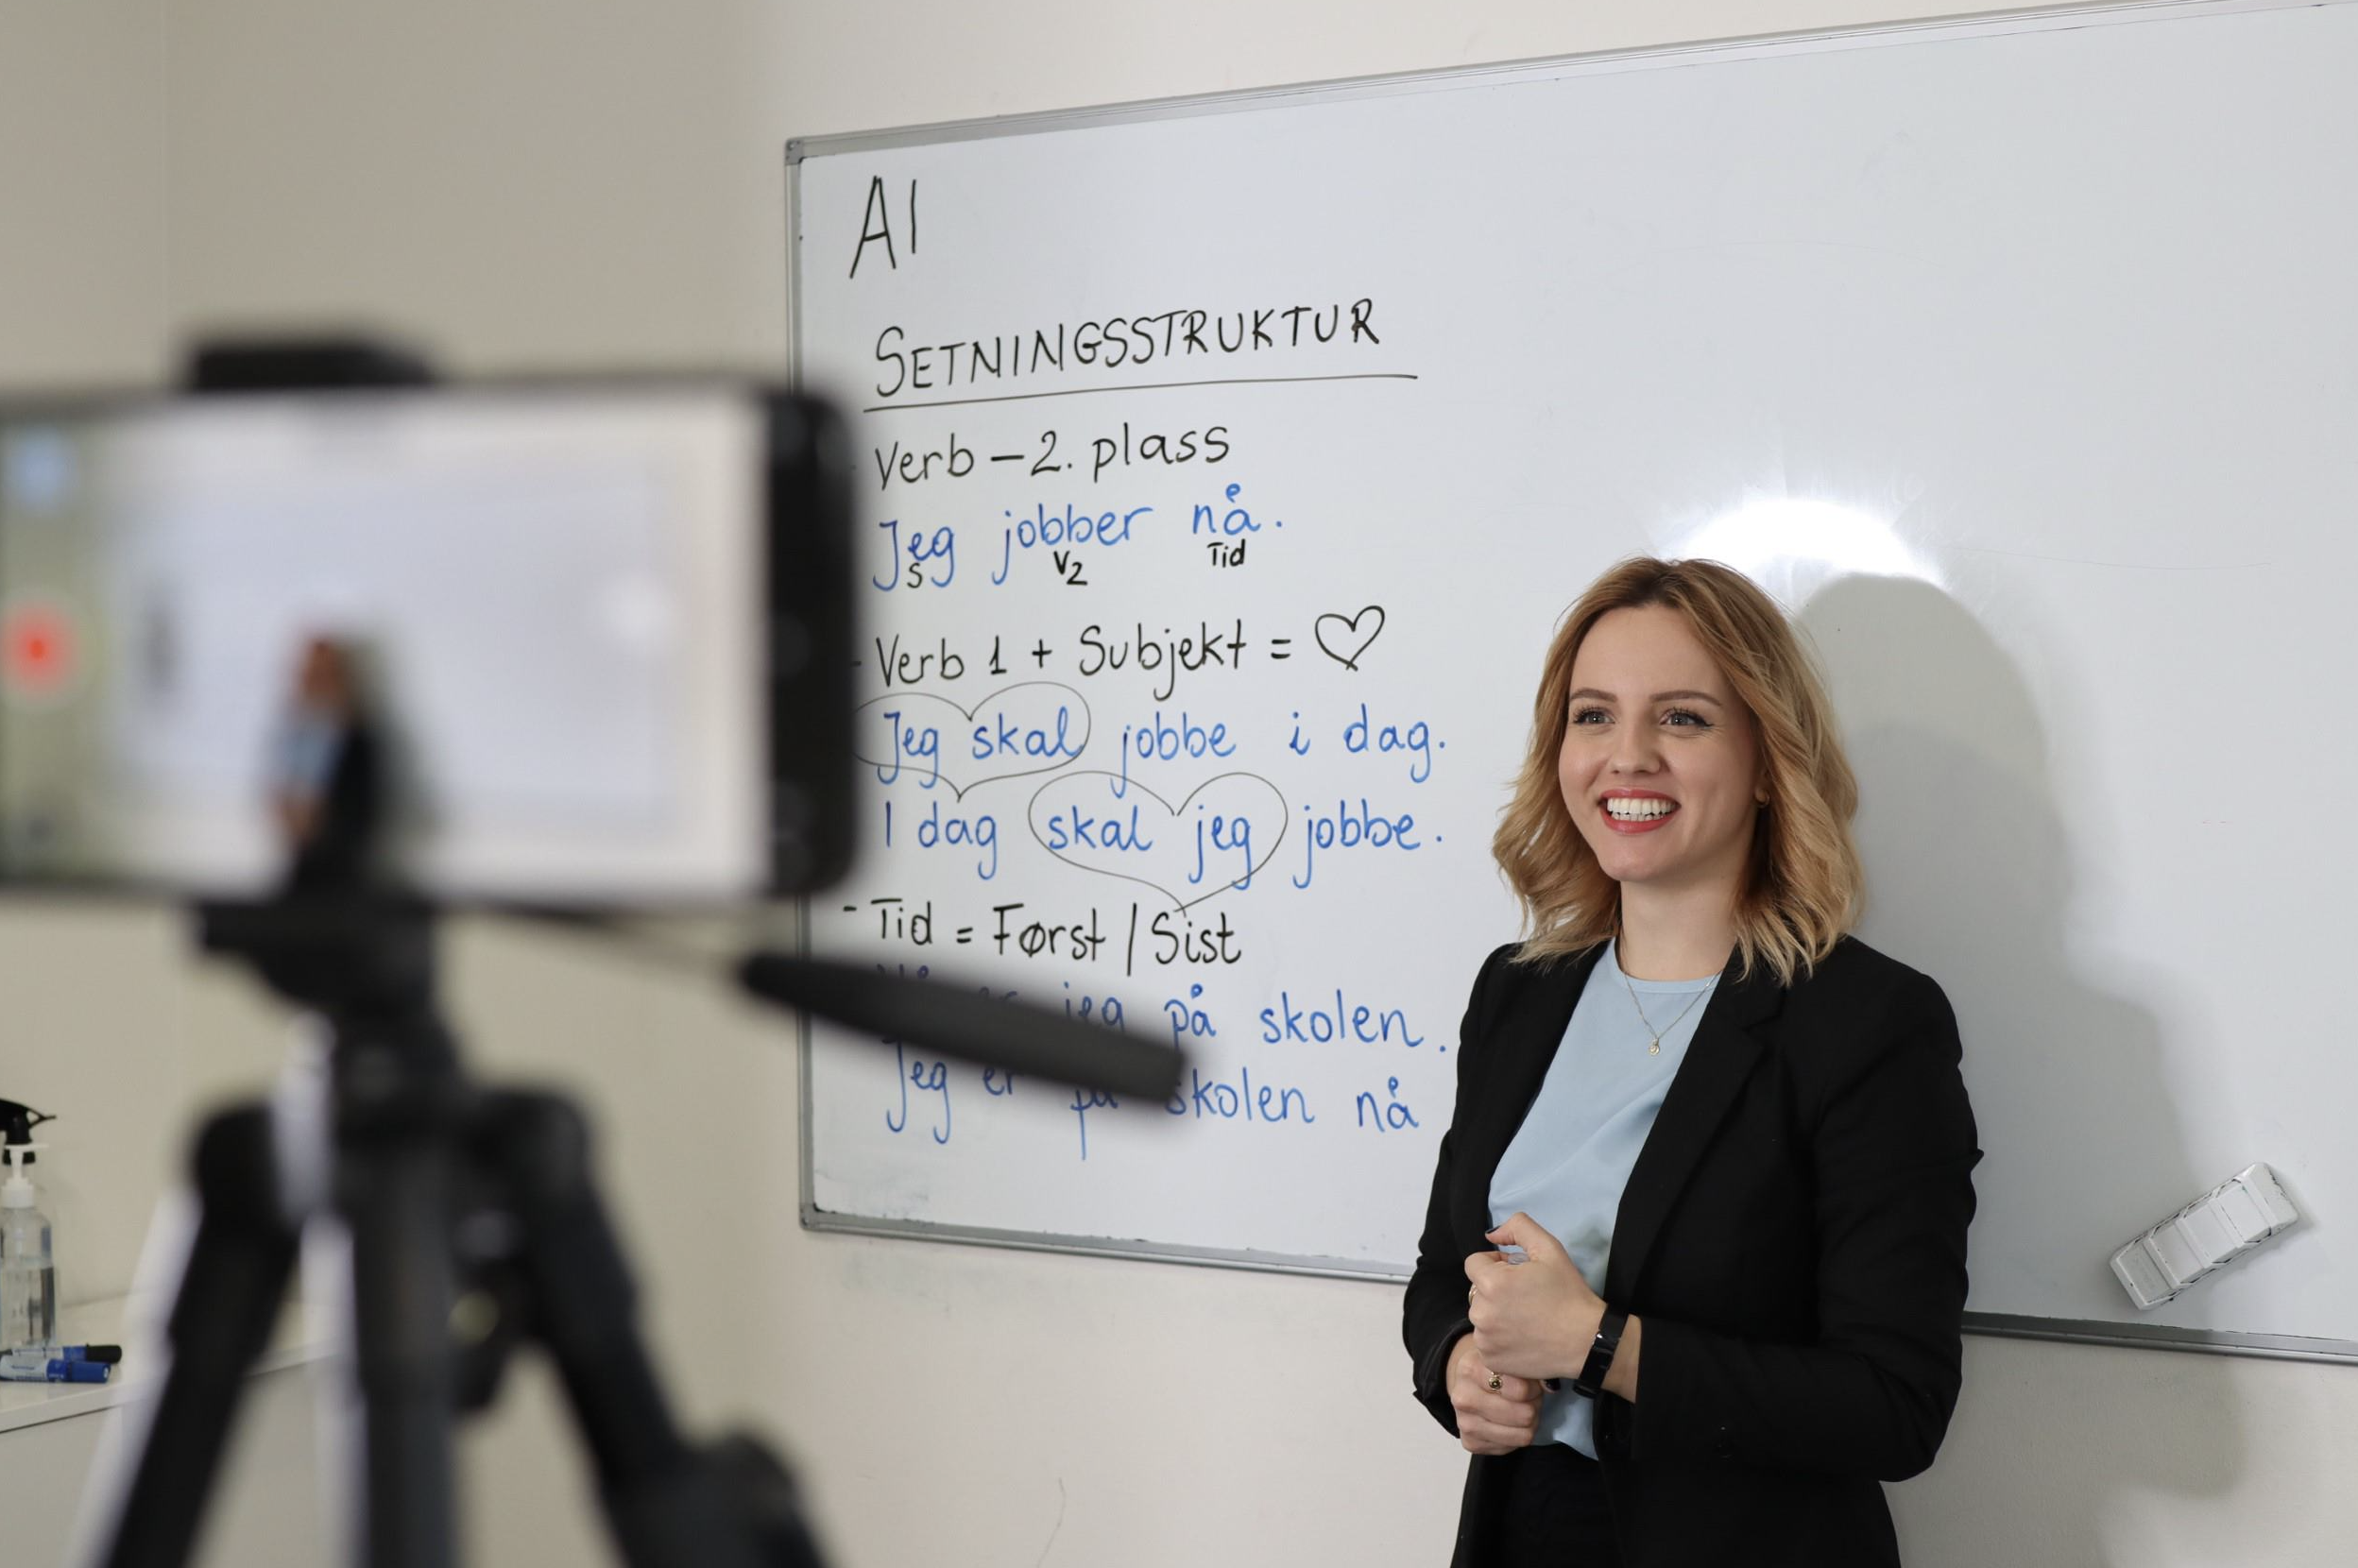 A1
SETNINGSSTRUKTUR
Verb – 2. plass
Jeg jobber nå.
S V2 Tid
- Verb 1 + Subjekt = ♡
Jeg skal jobbe i dag.
I dag skal jeg jobbe.
- Tid = Først / Sist
er jeg på skolen.
Jeg er på skolen nå